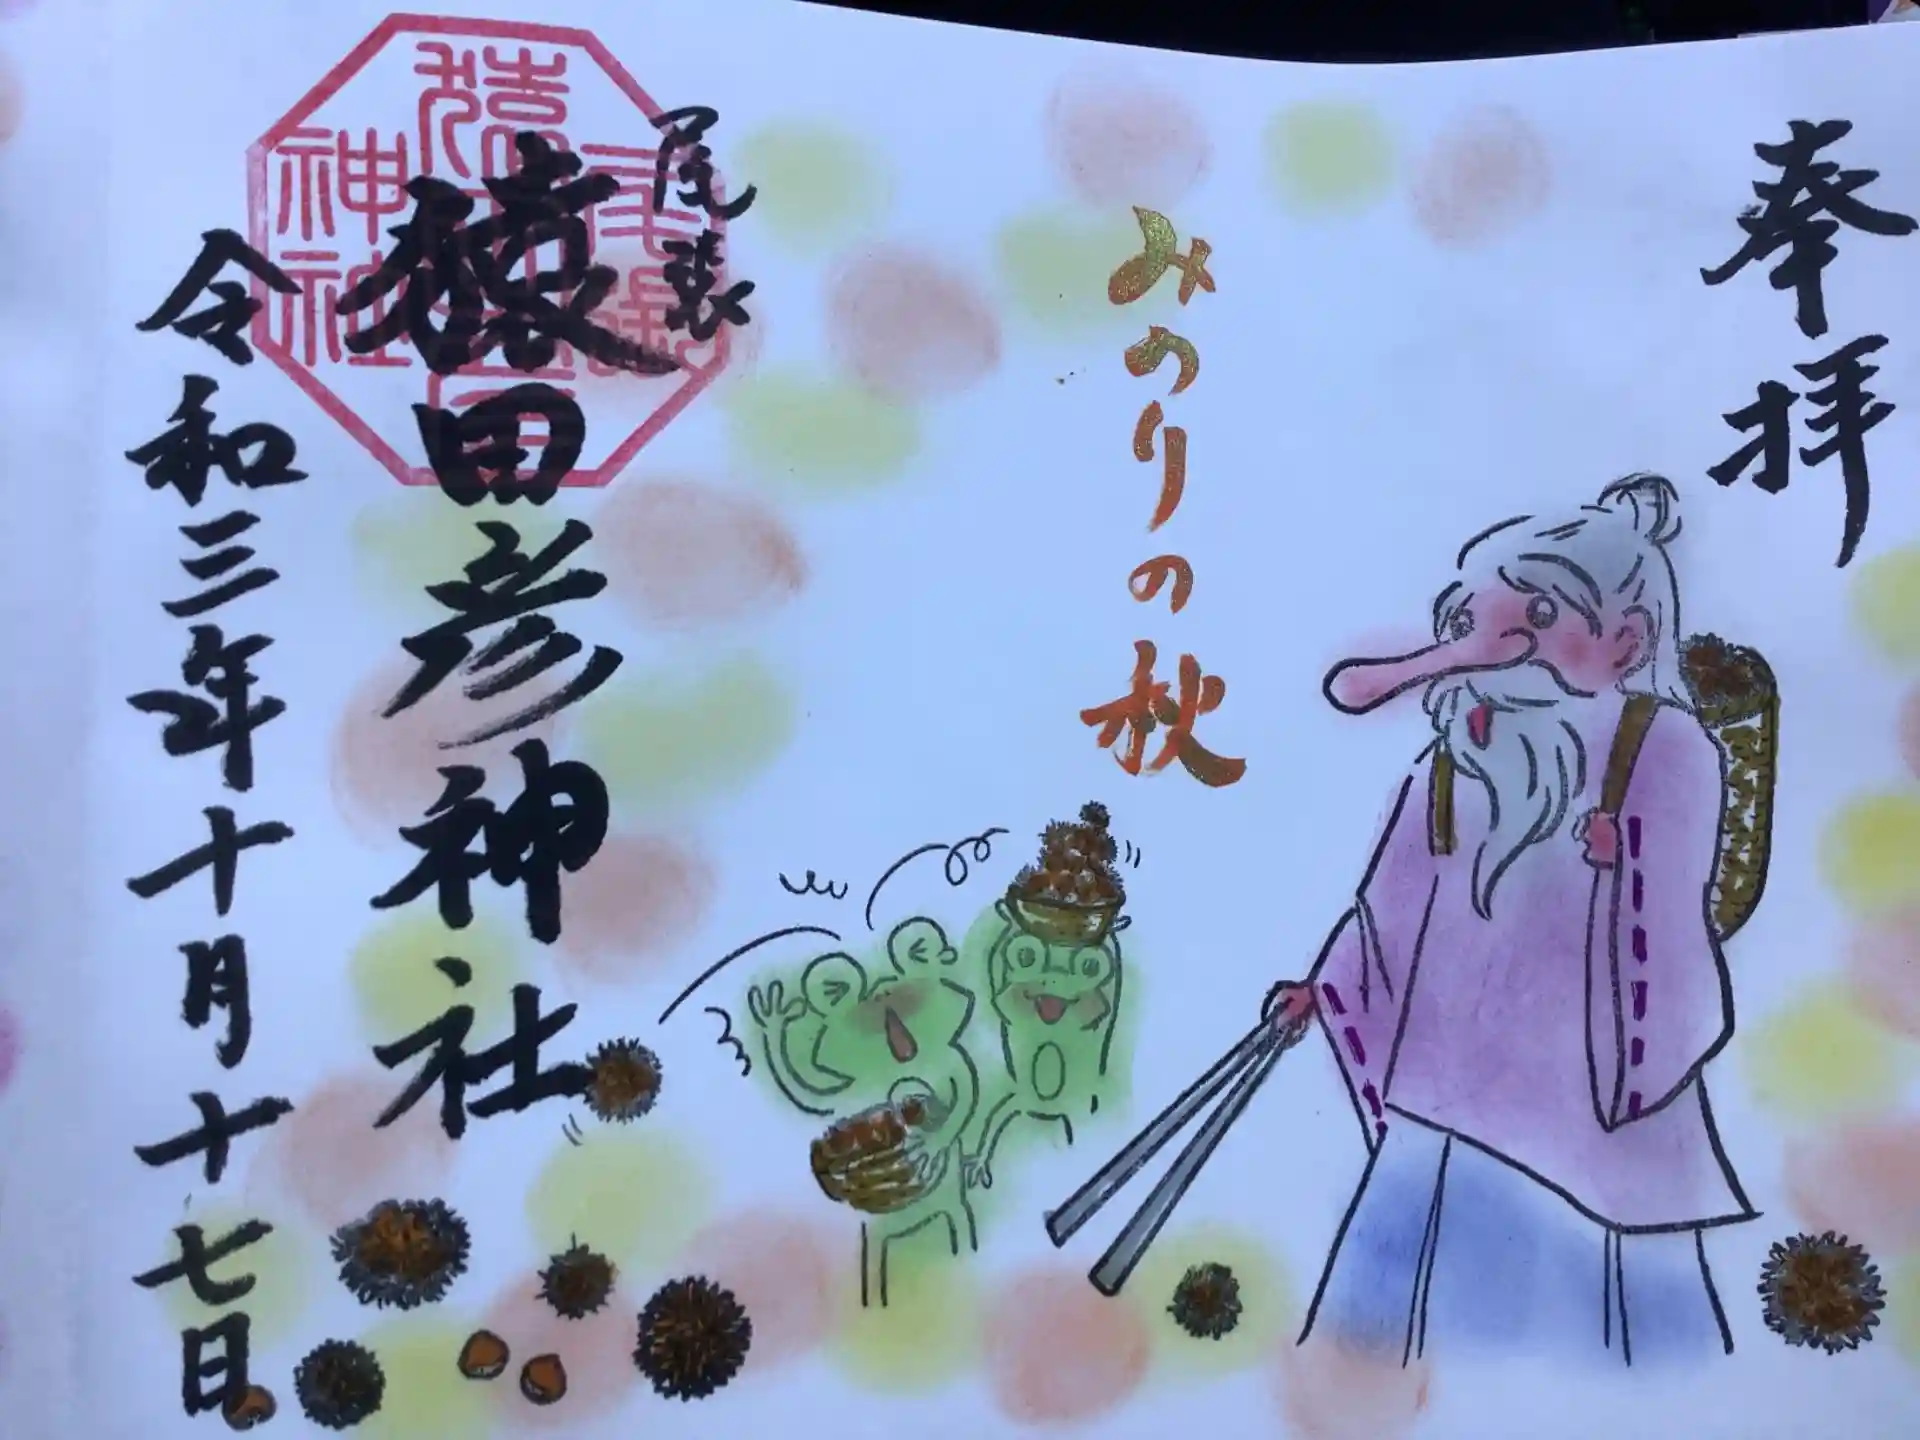 奉拝
みのりの秋
尾張
猿田彦神社
令和三年十月十七日
尾張
猿田彦
神社